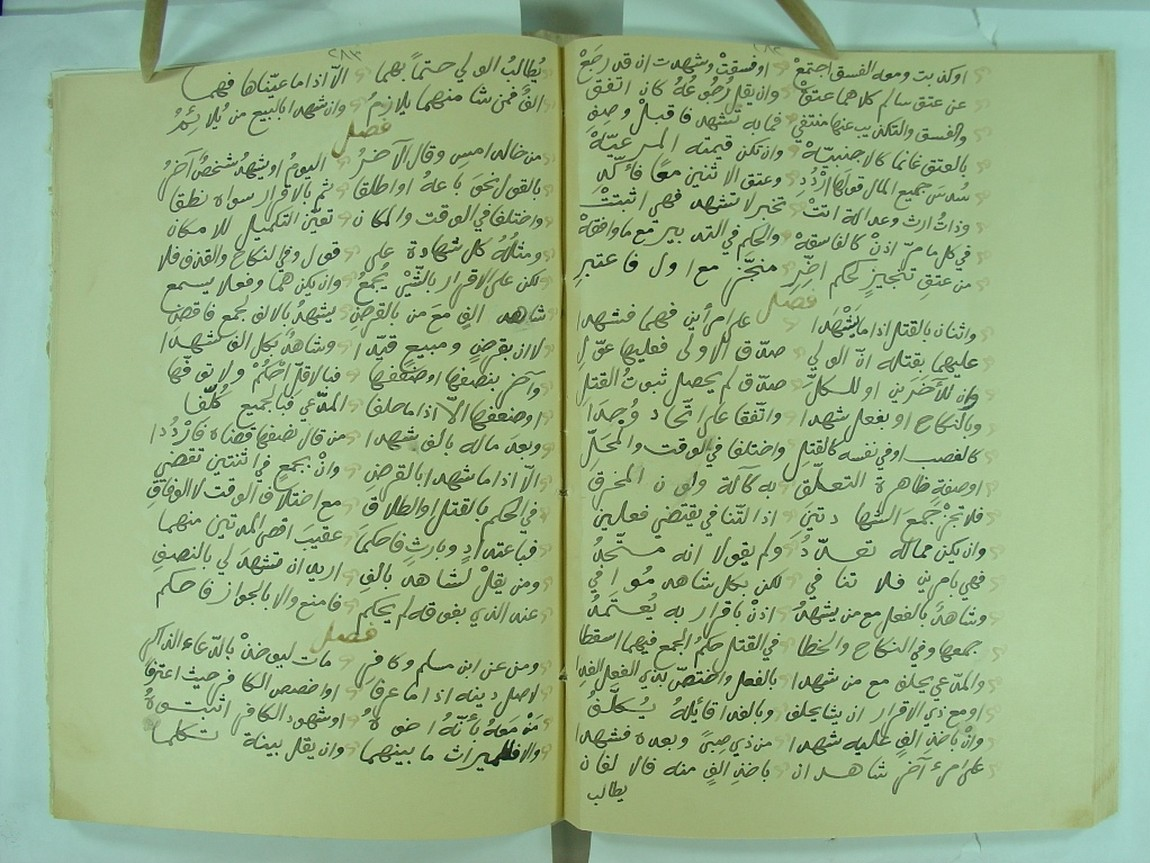 ٢٨٢
او كذبت ومعه الفسق اجتمع او فسقت وشهدت ان قد رجع
عن عتق سالم كلاهما عتق وان يقل رجوعه كان اتفق
والفسق والتكذيب عنها منتفي فما به تشهد فاقبل وصف
بالعتق غانما كالاجنبيه وان تكن قيمته المرعيه
سدس جميع المال قولها اردد وعتق الاثنين معا فأكد
وذات ارث وعدالة اتت تخبر لا تشهد فهي اثبتت
في كل ما مر اذن كالفاسقه والحكم في التدبير مع ما وافقه
من عتق تنجيز لحكم اخر منجز مع اول فاعتبر
فصل
واثنان بالقتل اذا ما يشهدا على امرأين فهما فشهدا
عليهما بقتله ان الولي صدق الاولى فعليها عول
وان للأخرين او للكل صدق لم يحصل ثبوت القتل
وبالنكاح او بفعل شهدا واتفقا على اتحاد وجدا
كالغصب او في نفسه كالقتل واختلفا في الوقت والمحل
او صفة ظاهرة التعلق به كآلة ولون المحرق
فلا تحز جمع الشهادتين اذ التنافي يقتضي فعلين
وان يكن مما له تعدد ولم يقولا انه متحد
فهي بامرين فلا تنافي لكن بكل شاهد موافي
وشاهد بالفعل مع من يشهد اذن باقرار به يعتمد
جمعها وفي النكاح والخطا في القتل حكم الجمع فيهما اسقطا
والمدعي يحلف مع من شهدا بالفعل واختص بذي الفعل الفدا
او مع ذي الاقرار ان يشا يحلف وبالفدا قائله يكلف
وان باخذ الف عليه شهدا من ذي صبى وبعده فشهدا
على امرء آخر شاهدان باخذ الف منه فالالفان
يطالب
٢٨٣
يطالب الولي حتما بهما الا اذا ما عيناها فهما
الف فمن شا منهما يلازم وان شهدا بالبيع من يلائم
فصل
من خالد امس وقال الآخر اليوم او يشهد شخص آخر
بالقول نحو باعه او اطلقا ثم بالاقرار سواه نطقا
واختلفا في الوقت والمكان تعين التكميل للامكان
ومثله كل شهادة على قول وفي النكاح والقذف فلا
لكن على الاقرار بالشيء يجمع وان يكن هما وفعلا يسمع
شاهد الف مع من بالقرض يشهد بالالف لجمع فاقض
لا ان بقرض ومبيع قيدا وشاهد بكل الف شهدا
وآخر بنصفها او ضعفها فبالاقل احكم ولا نوفها
او ضعفها الا اذا ما حلفا المدعي فبالجميع كلفا
وبعد ماله بالف شهدا من قال نصفها قضاه فارددا
الا اذا ما شهدا بالقرض وان بجمع في اثنتين تقضي
في الحكم بالقتل او الطلاق مع اختلاف الوقت لا الوفاق
فباعتداد وبارث فاحكما عقيب اقصى المدتين منهما
ومن يقل لشاهد بالف اريد ان تشهد لي بالنصف
عند الذي بفوقه لم يحكم فامنع والا بالجواز فاحكم
فصل
ومن عن ابن مسلم وكافر مات ليوخذ بالدعاء الذاكر
لاصل دينه اذا ما عرفا او اخصص الكافر حيث اعترفا
من معه بأنه اخوه او شهود الكافر اثبتوه
والا فالميراث ما بينهما وان يقل بينة تكلما